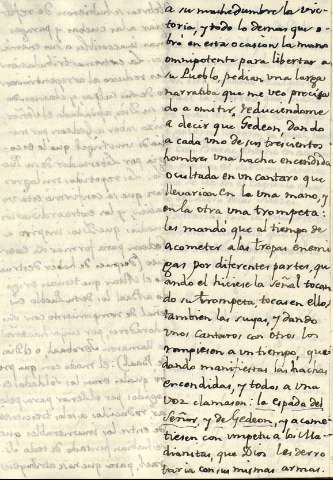 a su muchedumbre la vic-
toria, y todo lo demas, que o-
bro en esta ocasion la mano
omnipotente para libertar a
su Pueblo, pedian una larga
narratiba que me veo precisa
do a omitir, reduciendome
a decir que Gedeon, dando
a cada uno de sus trescientos
hombres una hacha encendida
ocultada en un cantaro que
llevarian en la una mano, y
en la otra una trompeta:
les mandó que al tiempo de
acometer a las tropas enemi
gas por diferentes partes, qu
ando el hiciese la señal tocan
do su trompeta, tocasen ellos
tambien las suyas, y dando
unos cantaros con otros los
rompiesen a un tiempo, que
dando manifiestas las hachas
encendidas, y todos a una
voz clamasen: la espada del
Señor, y de Gedeon, y acome
tiesen con impetu a los Ma-
dianitas, que Dios los derro
taria con sus mismas armas.